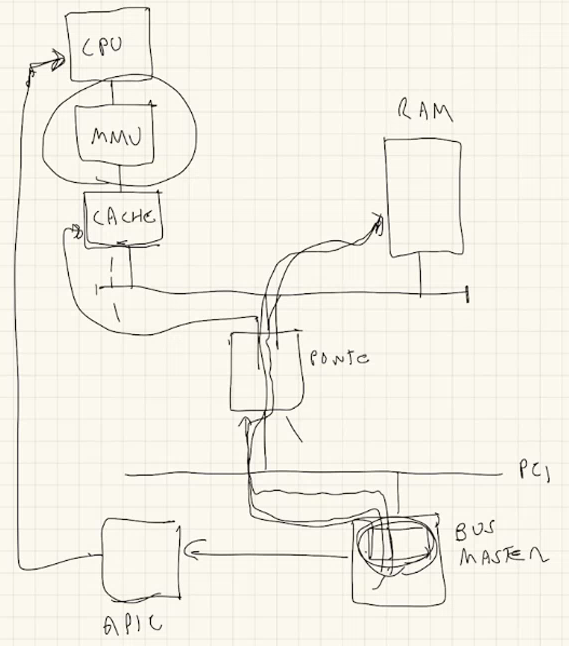 CPU
RAM
MMU
CACHE
PONTE
PCI
BUS
MASTER
APIC